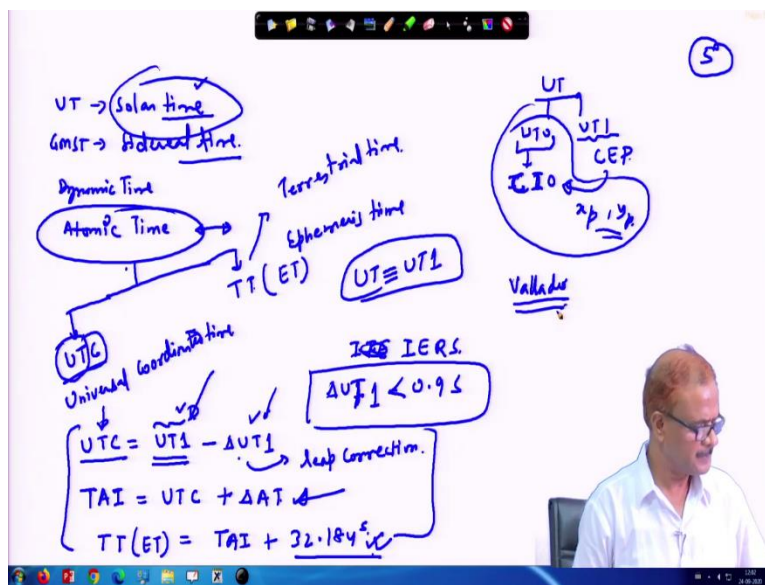 5
UT → Solar time
GMST → Sidereal time.
Dynamic Time
Atomic Time
Terrestrial time.
Ephemeris time
TT (ET)
UT ≡ UT1
UTC
Universal Coordinated time
IERS.
ΔUT1 < 0.9s
UTC = UT1 - ΔUT1
leap correction.
TAI = UTC + ΔAT
TT(ET) = TAI + 32.184s
UT
UT0
UT1
CIO
CEP.
xp, yp
Vallado
12:02
24-09-2020